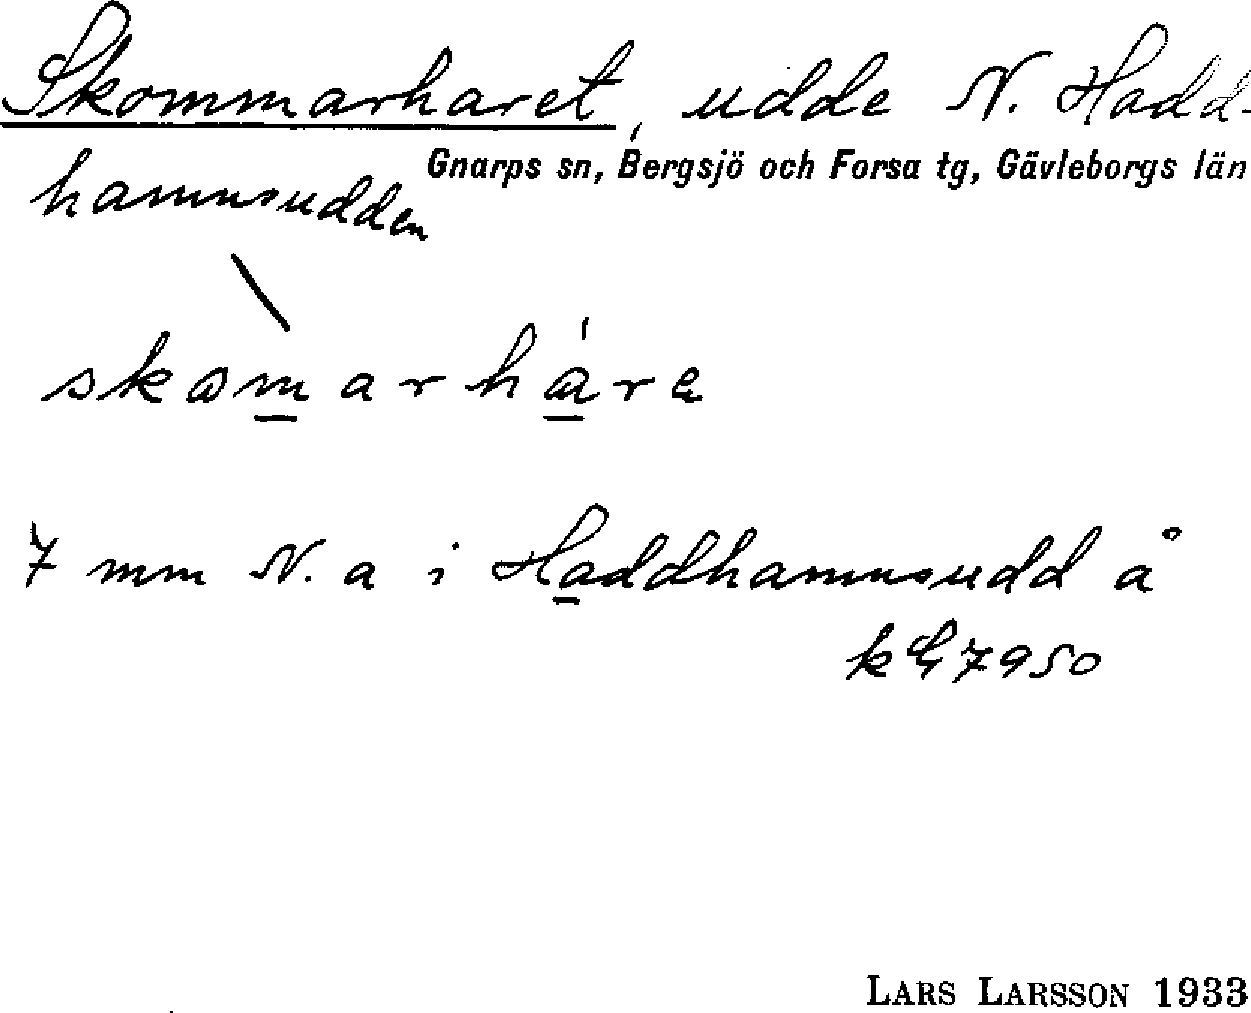 Skommarharet, udde N. Hadd-
Gnarps sn, Bergsjö och Forsa tg, Gävleborgs län
hamnsudden
skomarháre
7 mm N. a i Haddhamnsudd å
k G 7950
LARS LARSSON 1933